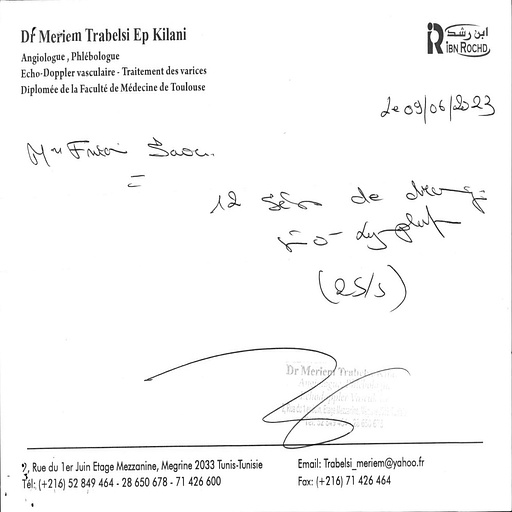 Dr Meriem Trabelsi Ep Kilani
Angiologue, Phlébologue
Echo-Doppler vasculaire - Traitement des varices
Diplomée de la Faculté de Médecine de Toulouse
ابن رشد
IBN ROCHD
Le 09/06/2023
12 de
(2S/S)
Dr Meriem Trabelsi
2, Rue du 1er Juin Etage Mezzanine, Megrine 2033 Tunis-Tunisie
Tél: (+216) 52 849 464 - 28 650 678 - 71 426 600
Email: Trabelsi_meriem@yahoo.fr
Fax: (+216) 71 426 464